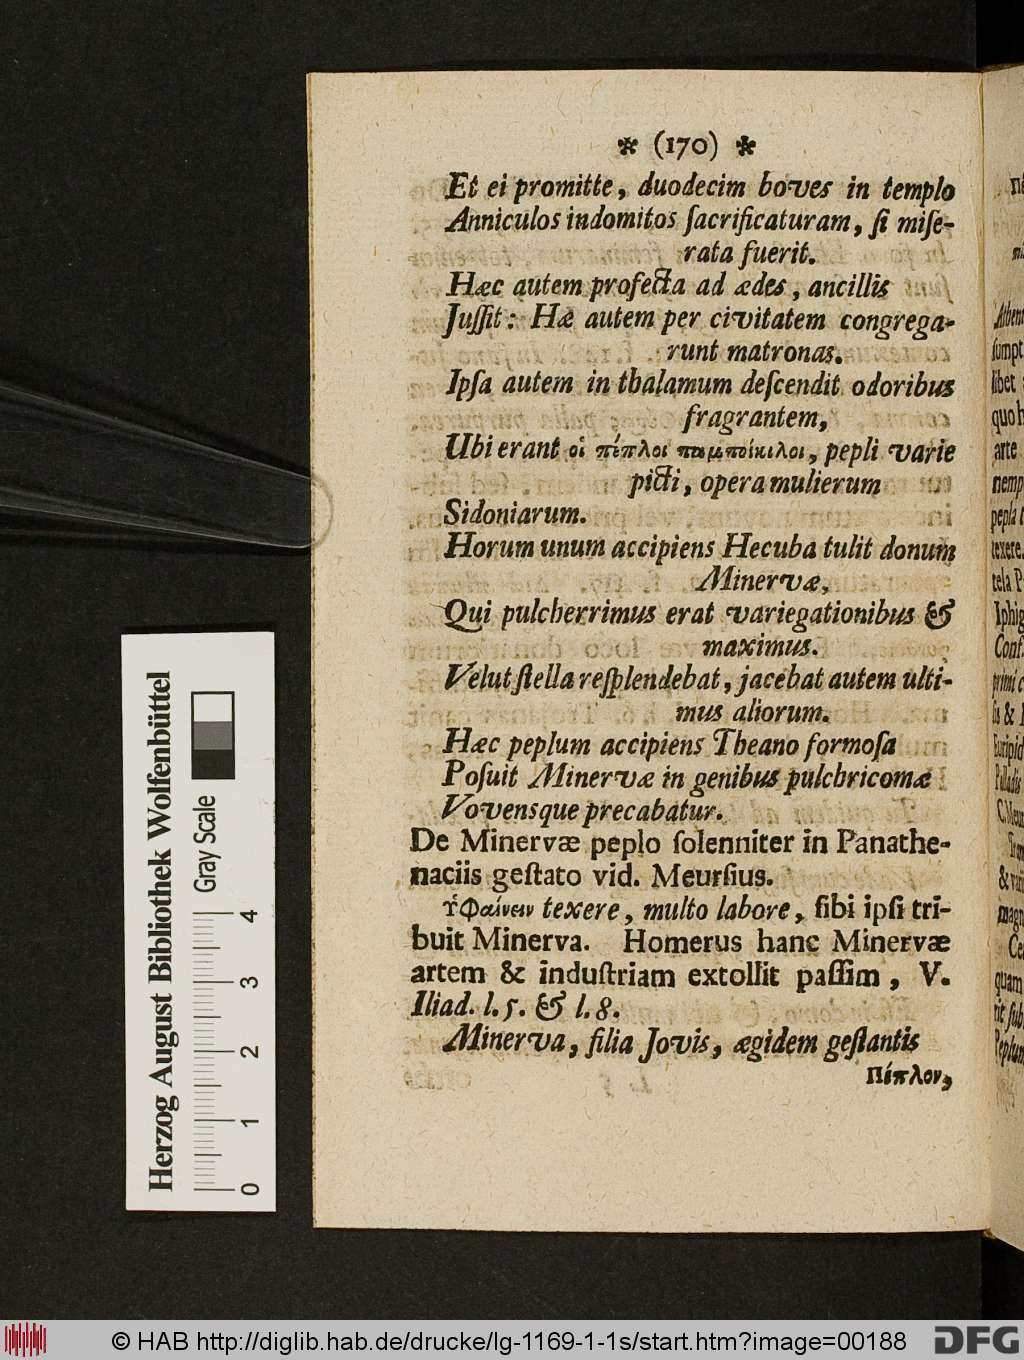 ✲ (170) ✲
Et ei promitte, duodecim boves in templo
Anniculos indomitos ſacrificaturam, ſi miſe-
rata fuerit.
Hæc autem profecta ad ædes, ancillis
Juſſit: Hæ autem per civitatem congrega-
runt matronas.
Ipſa autem in thalamum deſcendit odoribus
fragrantem,
Ubi erant οἱ πέπλοι παμποίκιλοι, pepli varie
picti, opera mulierum
Sidoniarum.
Horum unum accipiens Hecuba tulit donum
Minervæ,
Qui pulcherrimus erat variegationibus &
maximus.
Velut ſtella reſplendebat, jacebat autem ulti-
mus aliorum.
Hæc peplum accipiens Theano formoſa
Poſuit Minervæ in genibus pulchricomæ
Vovensque precabatur.
De Minervæ peplo ſolenniter in Panathe-
naciis geſtato vid. Meurſius.
ὑφαίνειν texere, multo labore, ſibi ipſi tri-
buit Minerva. Homerus hanc Minervæ
artem & induſtriam extollit paſſim, V.
Iliad. l. 5. & l. 8.
Minerva, filia Jovis, ægidem geſtantis
Πέπλον,
Herzog August Bibliothek Wolfenbüttel
Gray Scale
0 1 2 3 4
Athen
ſumpt
libet
quo h
arte
nemp
pepla t
texere.
tela P
Iphig
Conf.
primi c
ſis & 
Euripid
Palladis
C. Meur
& vari
magn
Ce
quam
tit ſub
Peplum
© HAB http://diglib.hab.de/drucke/lg-1169-1-1s/start.htm?image=00188
DFG